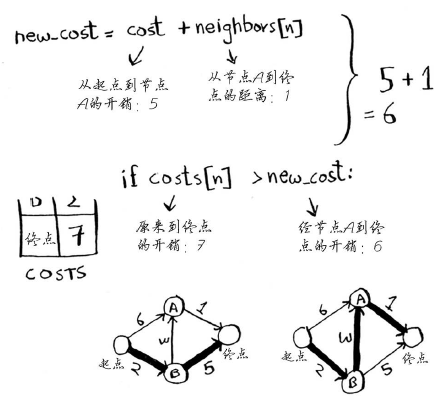 new_cost = cost + neighbors[n]
从起点到节点
A的开销：5
从节点A到终
点的距离：1
5 + 1
= 6
if costs[n] > new_cost:
终点 7
COSTS
原来到终点
的开销：7
经节点A到终
点的开销：6
A
6
1
起点
3
终点
2
B
5
A
6
1
起点
3
终点
2
B
5